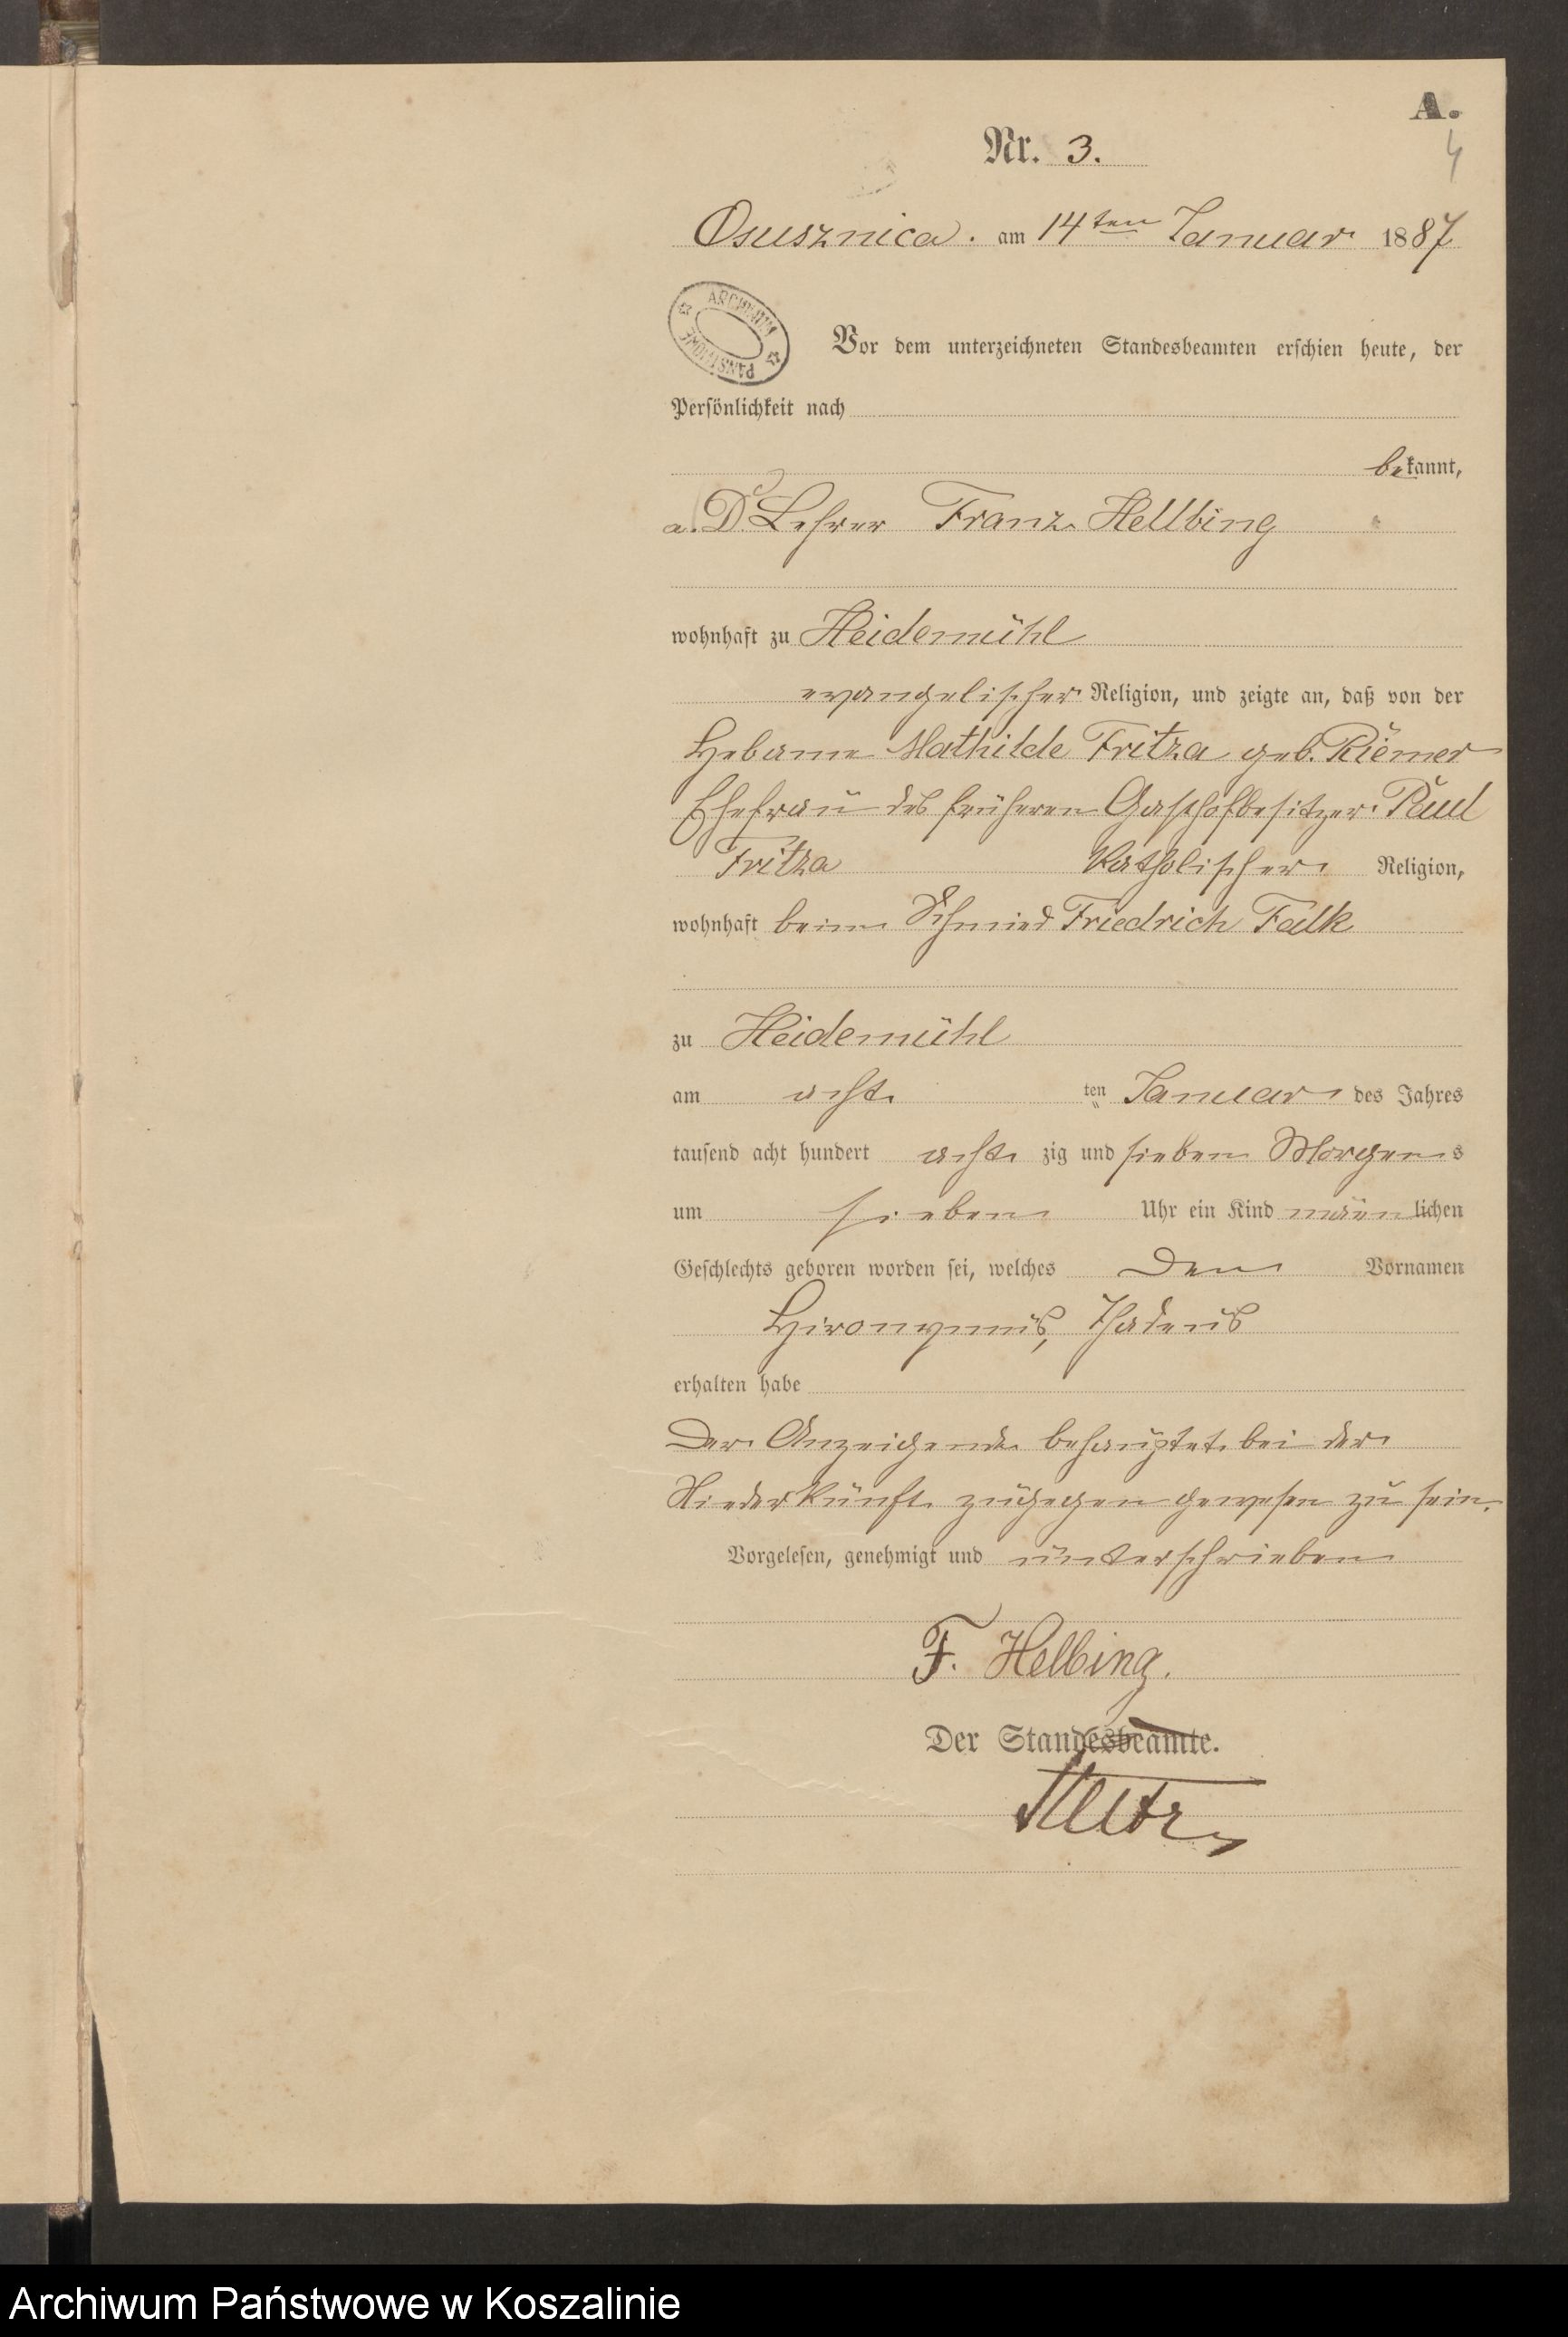 A.
4
Nr. 3.
Osusznica. am 14ten Januar 1887
ARCHIWUM PAŃSTWOWE
Vor dem unterzeichneten Standesbeamten erschien heute, der
Persönlichkeit nach
bekannt,
a. D. Lehrer Franz Hellbing
wohnhaft zu Heidemühl
evangelischer Religion, und zeigte an, daß von der
Hebame Mathilde Fritza geb. Riemer
Ehefrau des früheren Gasthofbesitzer Paul
Fritza katholischer Religion,
wohnhaft beim Schmied Friedrich Falk
zu Heidemühl
am acht ten Januar des Jahres
tausend acht hundert acht zig und sieben Morgens
um sieben Uhr ein Kind männlichen
Geschlechts geboren worden sei, welches den Vornamen
Hironymus, Thadeus
erhalten habe
Der Anzeigende behauptet bei der
Niederkunft zugegen gewesen zu sein.
Vorgelesen, genehmigt und unterschrieben
F. Helbing.
Der Standesbeamte.
Archiwum Państwowe w Koszalinie